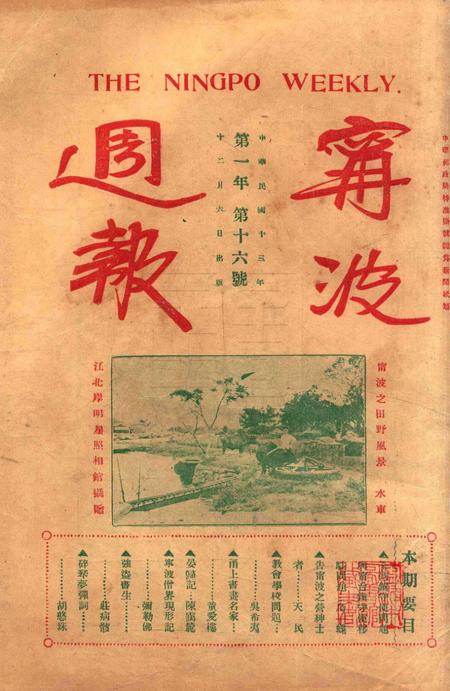 THE NINGPO WEEKLY.
甯波
週報
中華民國十三年
第一年第十六號
十二月六日出版
甯波之田野風景 水車
江北岸明星照相館攝贈
本期要目
告甯波之營紳士
者……天民
▲教會學校問題……
吳希夷
▲甬上書畫名家……
董愛樓
▲晏歸記……陳靄麓
▲寧波僧界現形記
彌勒佛
▲強盜書生
莊病骸
▲碎琴夢彈詞
胡憨珠